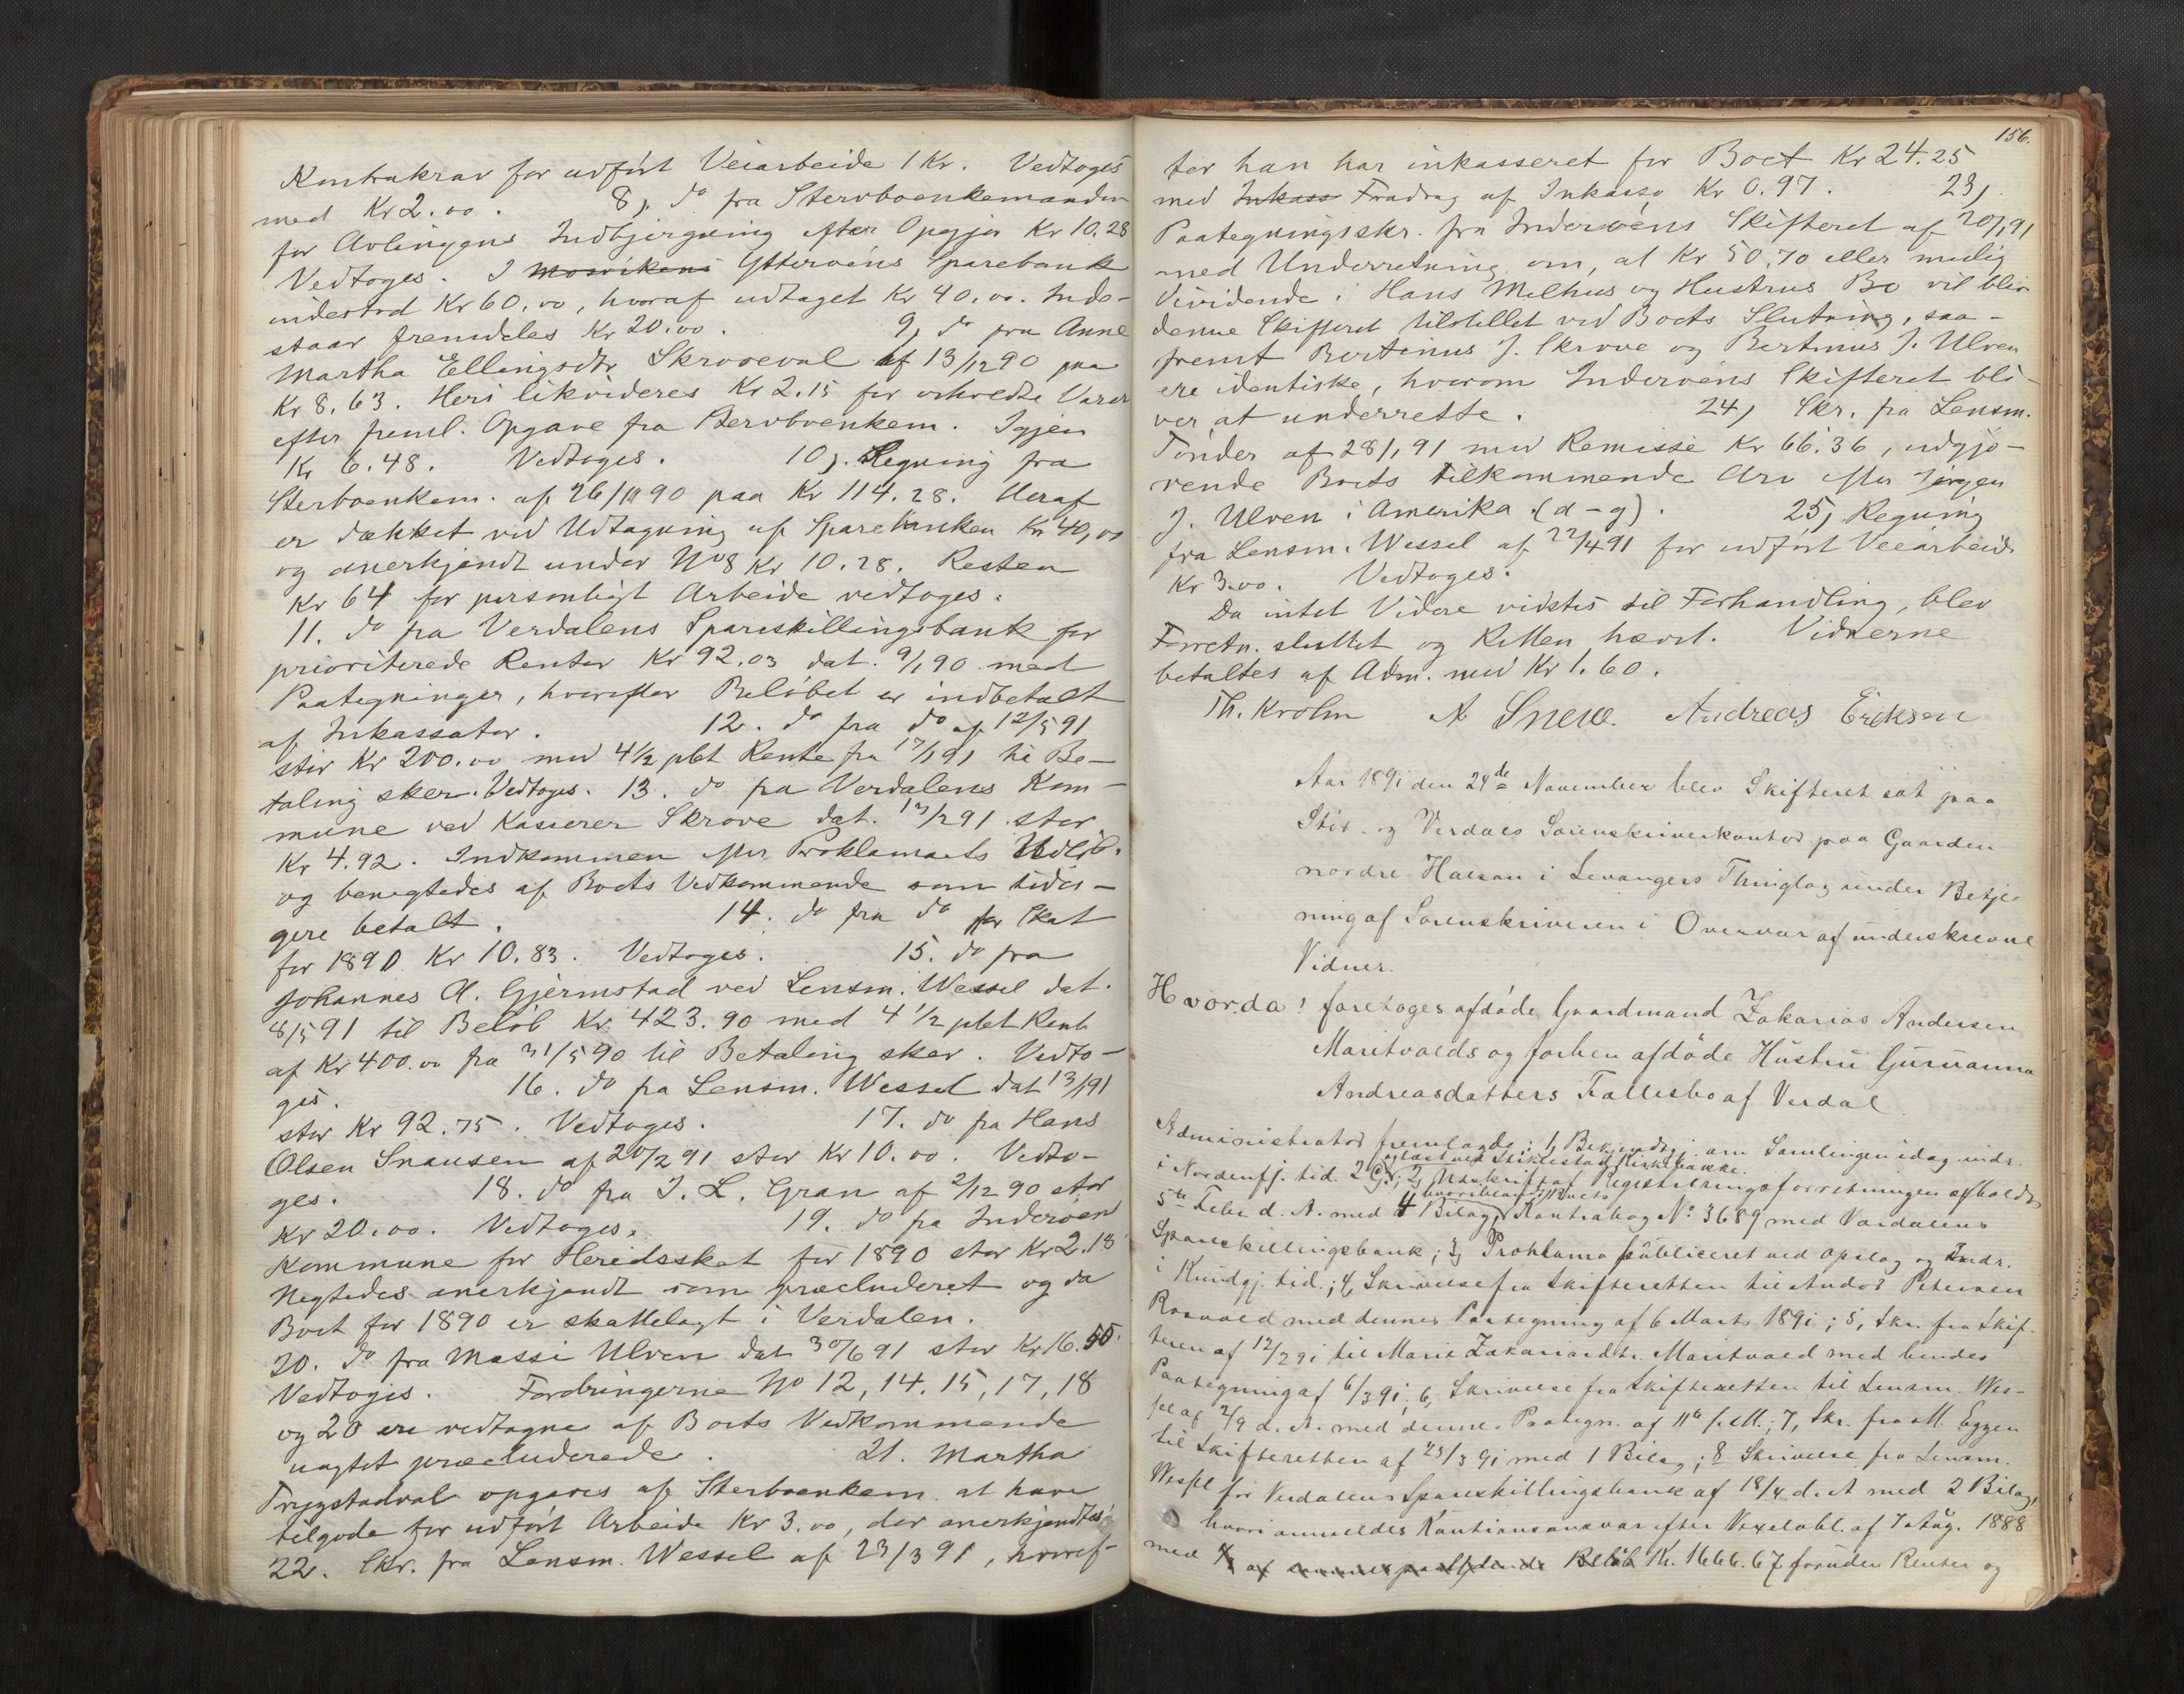 Kontrakrav for udført Veiarbeide 1 Kr. Vedtoges
med Kr 2.00. 8, do fra Stervboenkemanden
for Avlingens Indbjergning efter Opgjør Kr 10.28
Vedtoges. I Mosvikens Ytterøens Sparebank
indestod Kr 60.00, hvoraf udtaget Kr 40.00. Inde-
staar fremdeles Kr 20.00. 9, do fra Anne
Martha Ellingsdtr Skroveval af 13/12 90 paa
Kr 8.63. Heri likvideres Kr 2.15 for erholdte Varer
efter freml. Opgave fra Stervboenkem. Igjen
Kr 6.48. Vedtoges. 10). Regning fra
Sterboenkem. af 26/11 90 paa Kr 114.28. Heraf
er dækket ved Udtagning af Sparebanken Kr 40,00
og anerkjendt under No 8 Kr 10.28. Resten
Kr 64 for personligt Arbeide vedtoges.
11. do fra Verdalens Spareskillingsbank for
prioriterede Renter Kr 92.03 dat. 9/1 90 med
Paategninger, hvorefter Beløbet er indbetalt
af Inkassator. 12. do fra do af 12/5 91
stor Kr 200.00 med 4½ pCt Rente fra 17/1 91 til Be-
taling sker. Vedtoges. 13. do fra Verdalens Kom-
mune ved Kasserer Skrove dat. 17/2 91 stor
Kr 4.92. Indkommen efter Proklamaets Udløb.
og benegtedes af Boets Vedkommende som tidli-
gere betalt. 14. do fra do for Skat
for 1890 Kr 10.83. Vedtoges. 15. do fra
Johannes A. Gjermstad ved Lensm. Wessel dat.
8/5 91 til Beløb Kr 423.90 med 4½ pCt Rente
af Kr 400.00 fra 31/5 90 til Betaling sker. Vedto-
ges. 16. do fra Lensm. Wessel dat 13/1 91
stor Kr 92.75. Vedtoges. 17. do fra Hans
Olsen Snausen af 20/2 91 stor Kr 10.00. Vedto-
ges. 18. do fra J. L. Gran af 2/12 90 stor
Kr 20.00. Vedtoges. 19. do fra Inderøen
Kommune for Heredsskat for 1890 stor Kr 2.18
Negtedes anerkjendt som præcluderet og da
Boet for 1890 er skattelagt i Verdalen.
20. do fra Massi Ulven dat 30/6 91 stor Kr 16.50.
Vedtoges. Fordringerne No 12, 14, 15, 17, 18
og 20 ere vedtagne af Boets Vedkommende
uagtet præcluderede. 21. Martha
Trygstadval opgaves af Sterboenkem. at have
tilgode for udført Arbeide Kr 3.00, der anerkjendtes
22. Skr. fra Lensm. Wessel af 23/3 91, hvoref-
156.
ter han har inkasseret for Boet Kr 24.25
med Inkass Fradrag af Inkasso Kr 0.97. 23,
Paategningsskr. fra Inderøens Skifteret af 20/1 91
med Underretning om, at Kr 50.70 eller mulig
Dividende i Hans Melhus og Hustrus Bo vil blive
denne Skifteret tilstillet ved Boets Slutning, saa-
fremt Bertinus J. Skrove og Bertinus J. Ulven
ere identiske, hvorom Inderøens Skifteret bli-
ver at underrette. 24, Skr. fra Lensm.
Tønder af 28/1 91 med Remisse Kr 66.36, udgjø-
rende Boets tilkommende Arv efter Jørgen
J. Ulven i Amerika (d - g). 25, Regning
fra Lensm. Wessel af 22/4 91 for udført Veiarbeide
Kr 3.00. Vedtoges.
Da intet Videre vidstes til Forhandling, blev
Forretn. sluttet og Retten hævet. Vidnerne
betaltes af Adm. med Kr 1.60.
Th. Krohn A Sneve. Andreas Eriksen
Aar 1891 den 24de November blev Skifteret sat paa
Stør- og Verdals Sorenskriverkontor paa Gaarden
nordre Halsan i Levangers Thinglag under Betje-
ning af Sorenskriveren i Overvær af underskrevne
Vidner.
Hvorda: foretoges afdøde Gaardmand Zakarias Andersen
Maritvolds og forhen afdøde Hustru Guruanna
Andreasdatters Fællesbo af Verdal
Administrator fremlagde: 1, Bekjendtgj. om Samlingen idag indr.
oglæst ved Stiklestad Kirkebakke.
i Nordenfj. tid. 2 G.; 2, Udskrift af Registreringsforretningen afholdt
hvoriblandt
5te Febr. d. A. med 4 Bilag, Kontrabog No 3689 med Verdalens
Spareskillingsbank; 3, Proklama publiceret ved Opslag og Indr.
i Kundgj. tid.; 4, Skrivelse fra Skifteretten til Andor Petersen
Rosvold med dennes Paategning af 6 Marts 1891; 5, Skr. fra Skif-
teren af 12/2 91 til Marie Zakariasdtr. Maritvold med hendes
Paategning af 6/3 91; 6, Skrivelse fra Skifteretten til Lensm. Wes-
sel af 2/9 d. A. med dennes Paategn. af 11te s. M.; 7, Skr. fra M. Eggen
til Skifteretten af 25/3 91 med 1 Bilag; 8 Skrivelse fra Lensm.
Wessel for Verdalens Spareskillingsbank af 18/4 d. A med 2 Bilag,
hvori anmeldes Kautionsansvar efter Vexelobl. af 7 Aug. 1888
med Beløb Kr. 1666.67 foruden Renter og